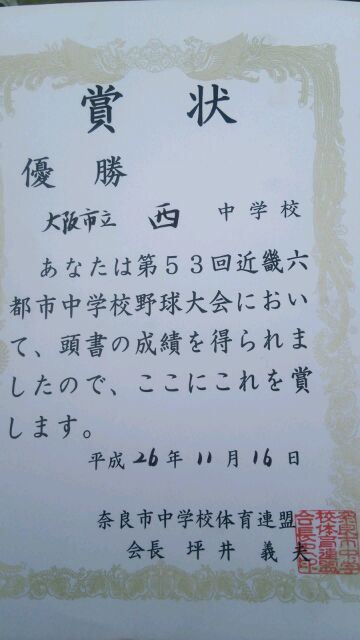 賞状
優勝
大阪市立 西 中学校
あなたは第53回近畿六
都市中学校野球大会におい
て、頭書の成績を得られま
したので、ここにこれを賞
します。
平成 26 年 11 月 16 日
奈良市中学校体育連盟
会長 坪井 義夫